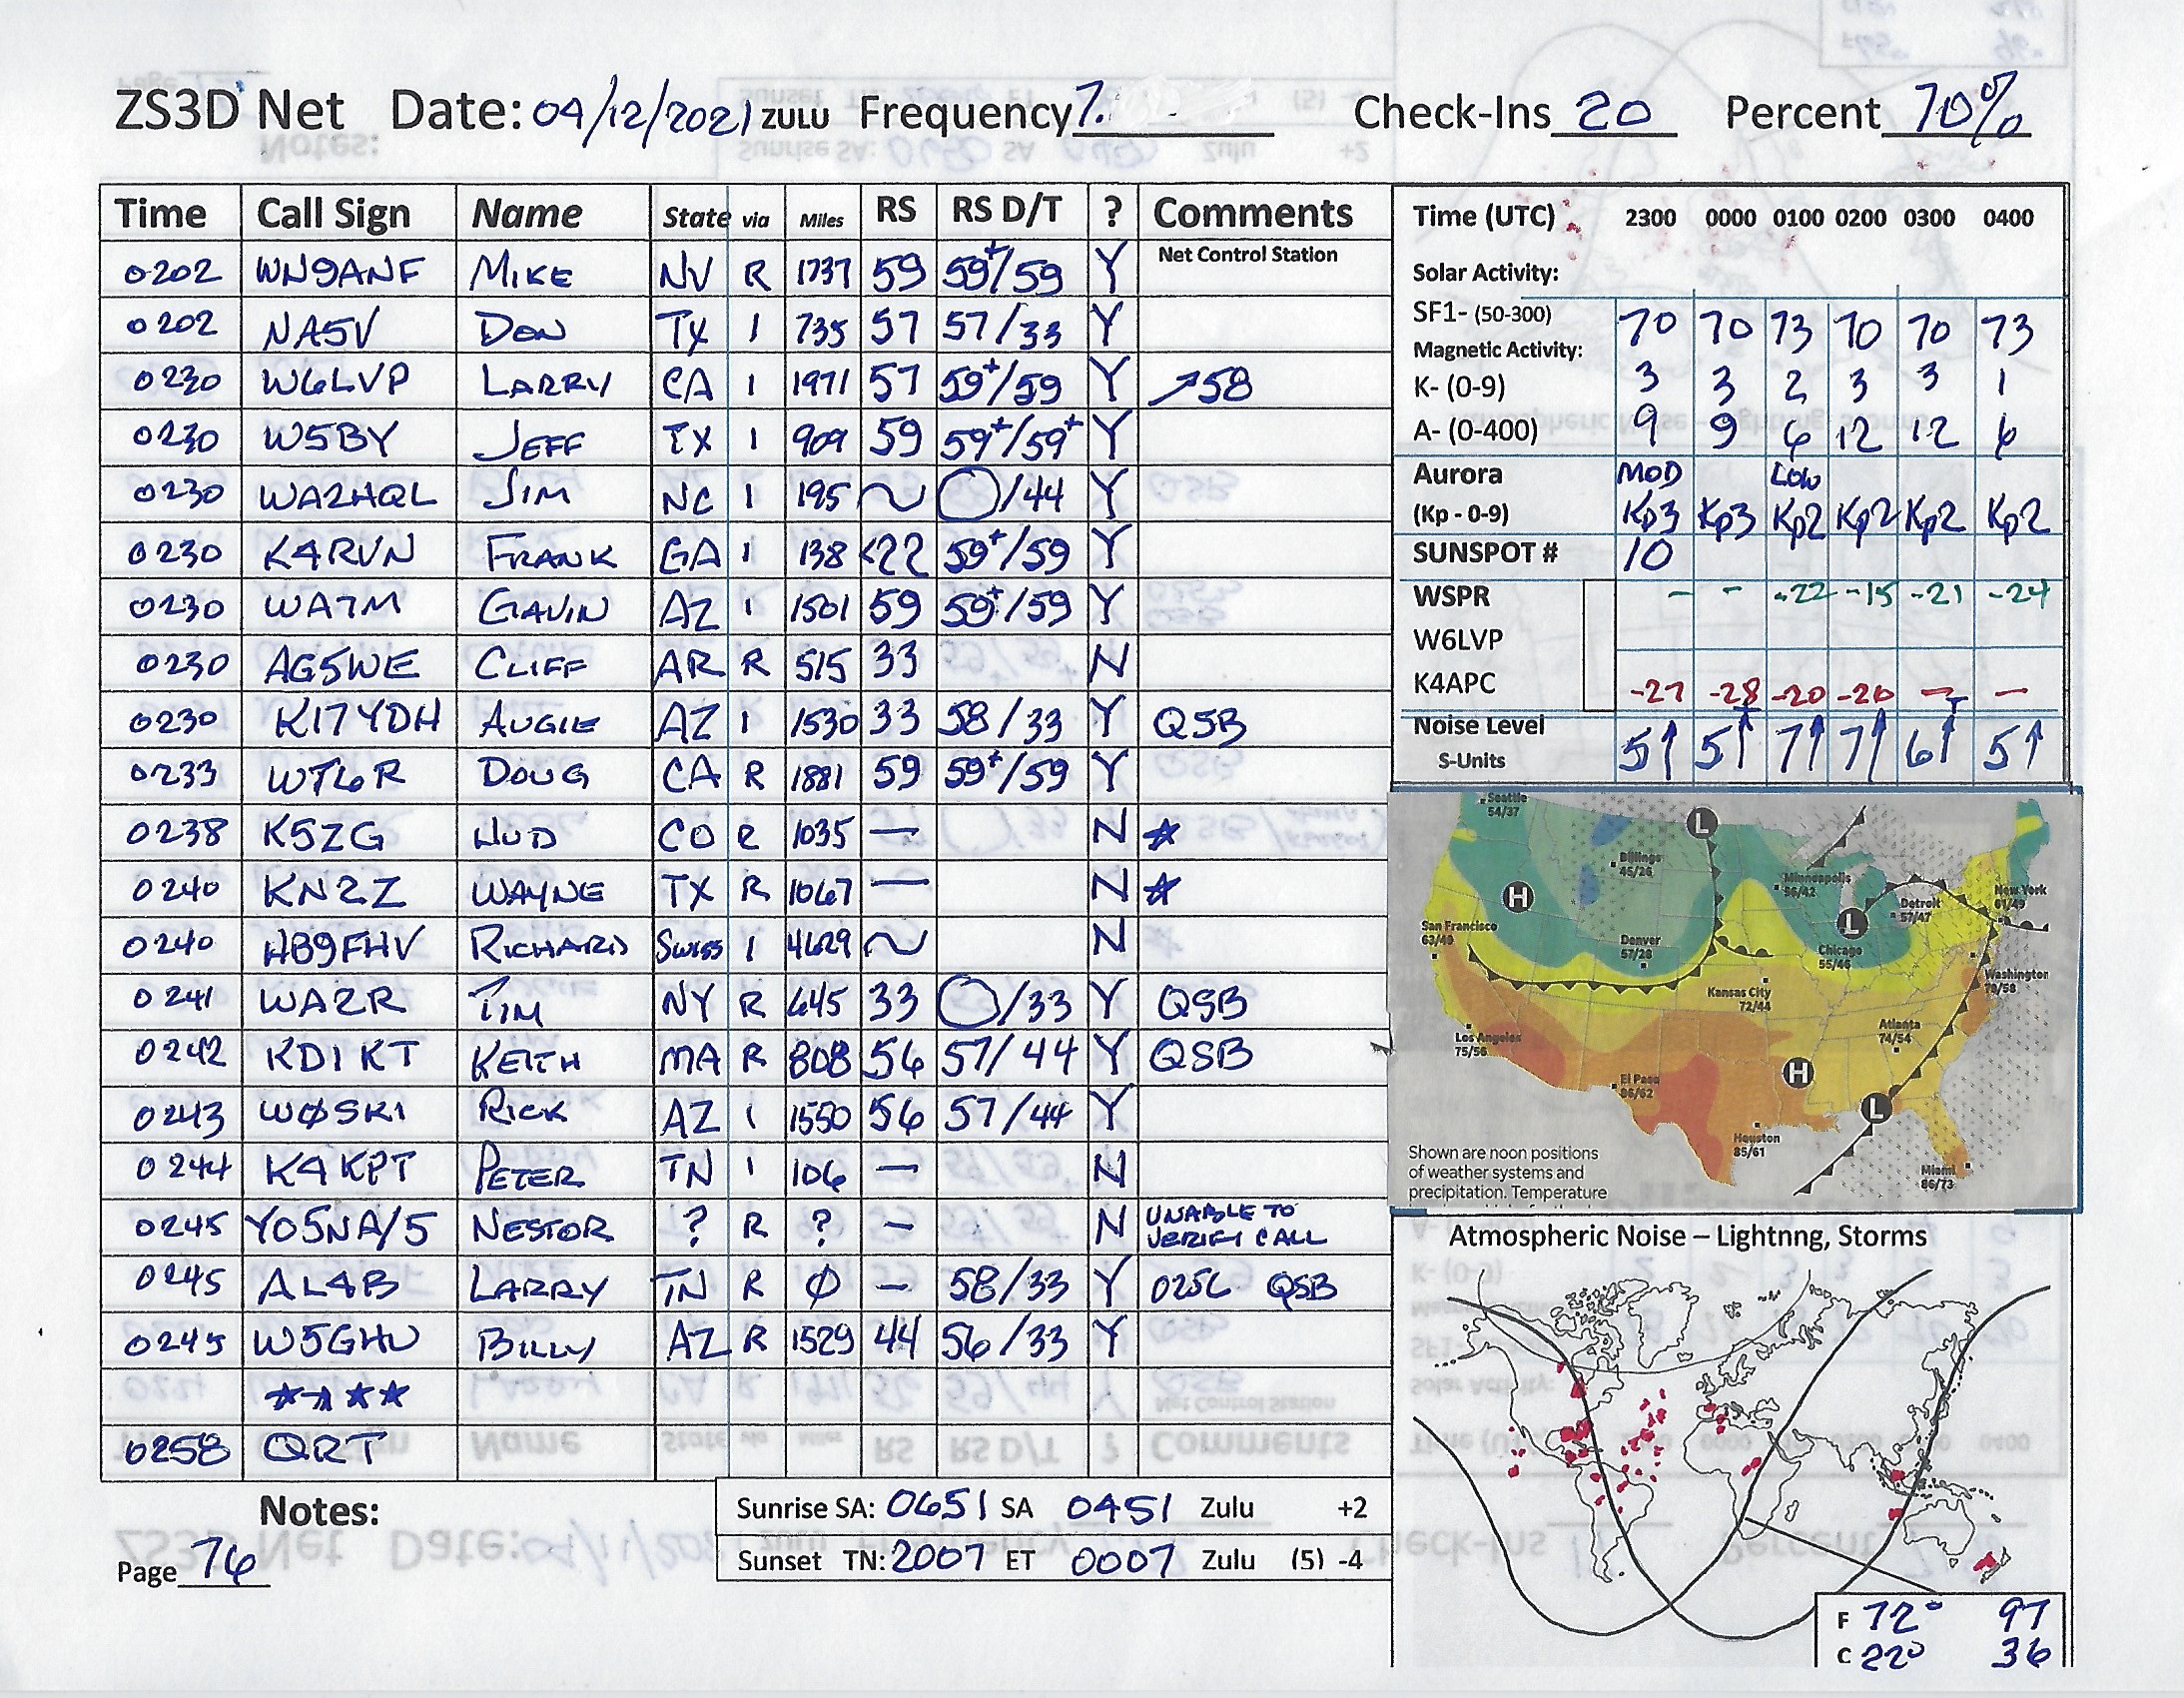 ZS3D Net Date: 04/12/2021 ZULU Frequency 7. Check-Ins 20 Percent 70%
Time Call Sign Name State via Miles RS RS D/T ? Comments
0202 WN9ANF MIKE NV R 1737 59 59+/59 Y Net Control Station
0202 NA5V DON TX 1 735 57 57/33 Y
0230 W6LVP LARRY CA 1 1971 57 59+/59 Y ↗58
0230 W5BY JEFF TX 1 909 59 59+/59+ Y
0230 WA2HQL JIM NC 1 195 ~ O/44 Y
0230 K4RVN FRANK GA 1 138 <22 59+/59 Y
0230 WA7M GAVIN AZ 1 1501 59 59+/59 Y
0230 AG5WE CLIFF AR R 515 33 N
0230 KI7YDH AUGIE AZ 1 1530 33 58/33 Y QSB
0233 WT6R DOUG CA R 1881 59 59+/59 Y
0238 K5ZG HUD CO R 1035 — N ★
0240 KN2Z WAYNE TX R 1067 — N ★
0240 HB9FHV RICHARD Swiss 1 4629 ~ N
0241 WA2R TIM NY R 645 33 O/33 Y QSB
0242 KD1KT KEITH MA R 808 56 57/44 Y QSB
0243 WØSKI RICK AZ 1 1550 56 57/44 Y
0244 K4KPT PETER TN 1 106 — N
0245 YO5NA/5 NESTOR ? R ? — N UNABLE TO
VERIFY CALL
0245 AL4B LARRY TN R Ø — 58/33 Y 0256 QSB
0245 W5GHU BILLY AZ R 1529 44 56/33 Y
★★★★
0258 QRT
Notes:
Page 76
Sunrise SA: 0651 SA 0451 Zulu +2
Sunset TN: 2007 ET 0007 Zulu (5) -4
Time (UTC) 2300 0000 0100 0200 0300 0400
Solar Activity:
SF1- (50-300) 70 70 73 70 70 73
Magnetic Activity:
K- (0-9) 3 3 2 3 3 1
A- (0-400) 9 9 6 12 12 6
Aurora MOD Low
(Kp - 0-9) Kp3 Kp3 Kp2 Kp2 Kp2 Kp2
SUNSPOT # 10
WSPR — — -22 -15 -21 -24
W6LVP
K4APC -27 -28 -20 -20 — —
Noise Level
S-Units 5↑ 5↑ 7↑ 7↑ 6↑ 5↑
Seattle
54/37
L
Billings
45/26
Minneapolis
56/42
H
New York
61/49
Detroit
57/47
L
San Francisco
63/49
Denver
57/28
Chicago
55/46
Washington
70/58
Kansas City
72/44
Atlanta
74/54
Los Angeles
75/56
H
El Paso
86/62
L
Houston
85/61
Miami
86/73
Shown are noon positions
of weather systems and
precipitation. Temperature
Atmospheric Noise – Lightnng, Storms
F 72° 97
C 22° 36